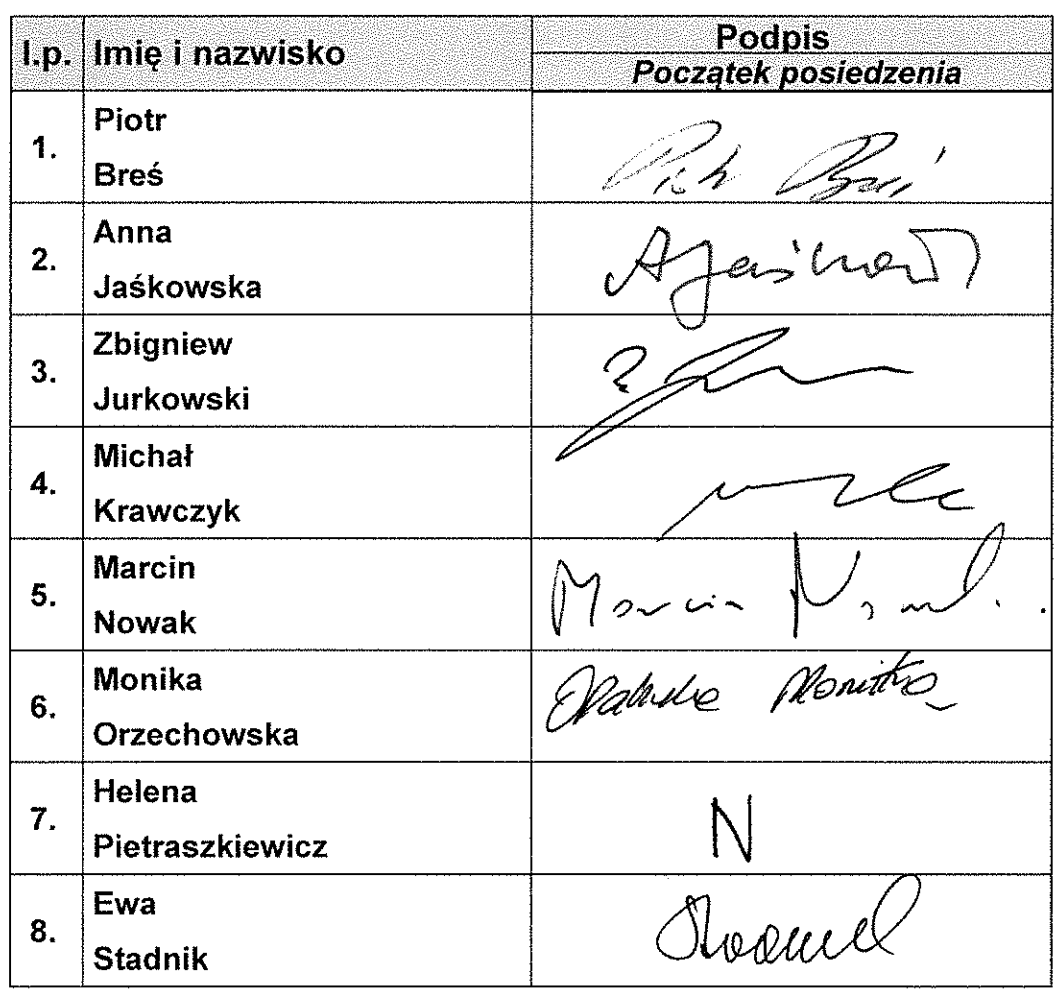 l.p. Imię i nazwisko Podpis
Początek posiedzenia
1. Piotr
Breś Piotr Breś
2. Anna
Jaśkowska
3. Zbigniew
Jurkowski
4. Michał
Krawczyk
5. Marcin
Nowak Marcin Nowak
6. Monika
Orzechowska Monika
7. Helena
Pietraszkiewicz N
8. Ewa
Stadnik Stadnik